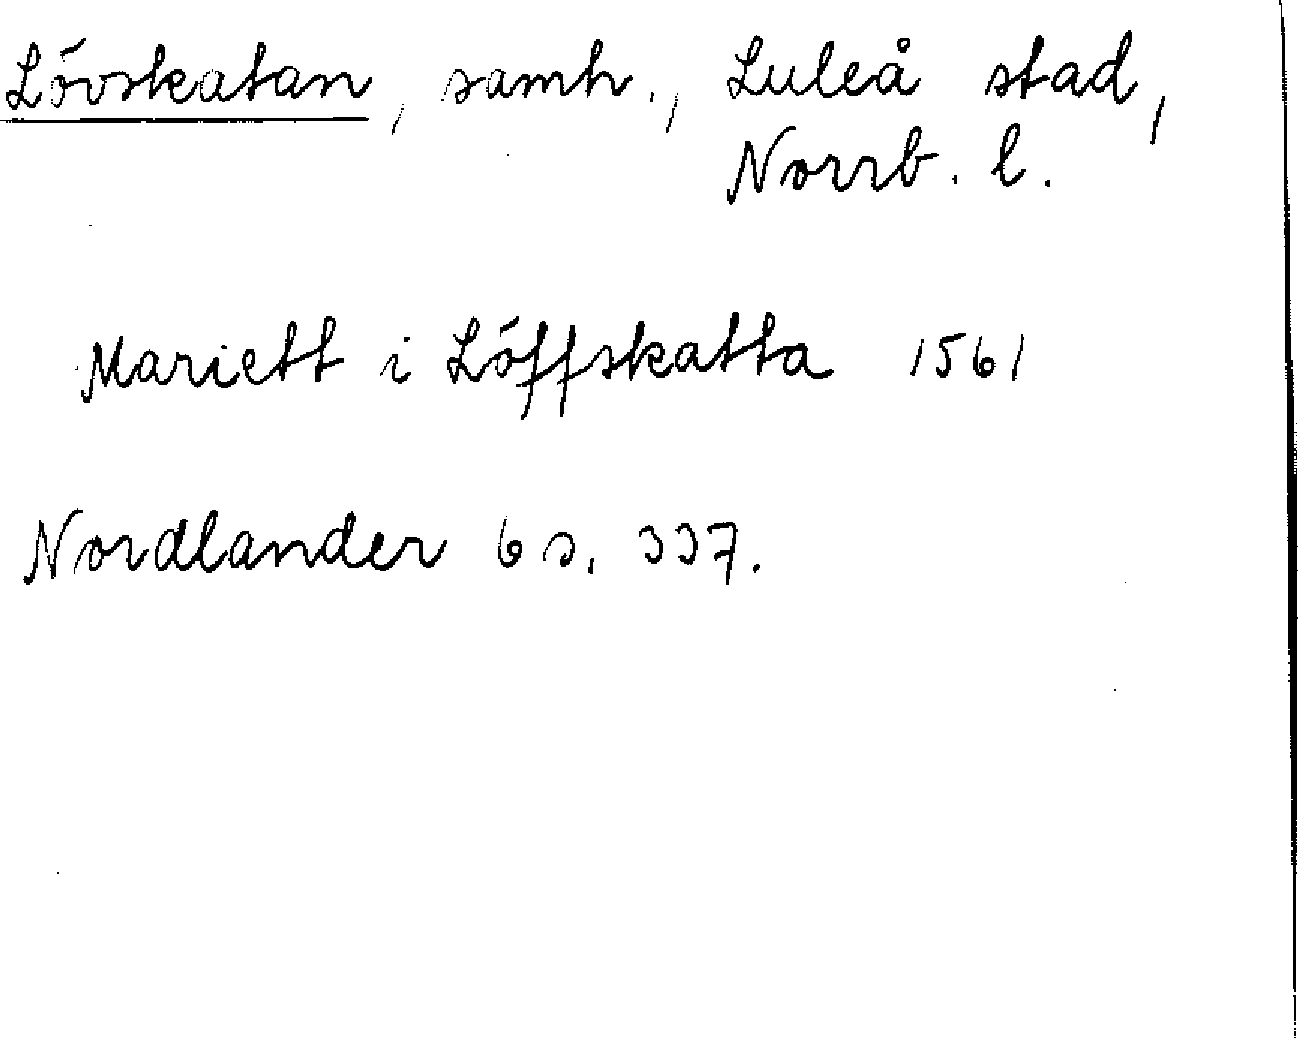 Lövskatan, samh., Luleå stad,
Norrb. l.
Mariett i Löffskatta 1561
Nordlander 6 s. 337.